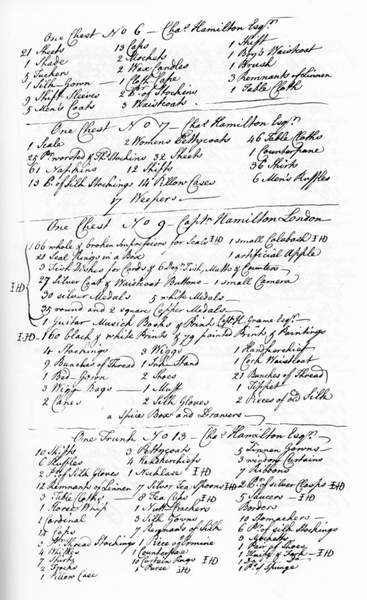 One Chest No 6 — Chas. Hamilton Esqr.
21 Sheets 13 Caps 1 Shift
1 Shade 2 Mockets 1 Boy's Waistcoat
5 Tuckers 2 Wax Candles 1 Brush
1 Silk Gown — 1 Cloth Cape 3 Remnants of Linnen
9 Shift Sleeves 2 Pr. of Stockins 1 Table Cloth
5 Men's Coats 3 Waistcoats
One Chest No 7 — Chas. Hamilton Esqr.
1 Scale 2 Womens Pettycoats 46 Table Cloths
25 Prs. worsted & Thd. Stockins 32 Sheets 1 Counterpane
61 Napkins 12 Shifts 36 Shirts
13 Prs. of Silk Stockings 14 Pillow Cases 6 Men's Ruffles
17 Weepers
One Chest No 9 — Captn. Hamilton London
166 whole & broken Impressions for Seals IHD 1 small Calabash IHD
21 Seal Rings in a Box 1 artificial Apple
3 Fish Dishes for Cards & 6 Doz. Fish, Metto & Counters
IHD 27 Silver Coat & Waistcoat Buttons — 1 small Camera
30 silver Medals 5 white Medals
35 round and 2 square Copper Medals
1 Guitar Musick Books & Prints Captn. Graeme Esqr.
IHD 160 black & white Prints & 29 painted Prints & Paintings
4 Stockings 3 Wiggs 1 Handkerchief
9 Bunches of Thread 1 Ink Stand Waistcoat
1 Bed-Gown 2 Shoes 21 Bunches of Thread
3 Wigg Bags — 1 Muff 1 Tippet
2 Canes 2 Silk Gloves 2 Pieces of old Silk
a Spice Box and Drawers
One Trunk No 13 — Chas. Hamilton Esqr.
10 Shifts 3 Pettycoats 5 Linnen Gowns
6 Ruffles 4 Handkerchiefs 3 window Curtains
2 Pr. of Silk Gloves 1 Necklace IHD 7 Ribbons
12 Remnants of Linnen 7 Silver Tea Spoons IHD 2 Pr. of silver Clasps IHD
3 Table Cloths 3 Tea Cups IHD 5 Saucers IHD
1 Horse Whip 1 Nutt Crackers Borders
1 Cardinal 3 Silk Gowns 10 Stomachers
13 Caps 7 Remnants of Silk 6 Pr. of silk Stockings
2 Pr. Thread Stockings 1 Piece of Ermine 9 Jackets
4 1 Counterpane 1 Pair of Shoes
7 Shirts 10 Curtain Rings IHD 1 Knife & Fork IHD
2 Frocks 1 Purse IHD
1 Pillow Case 1 Pr. of Spunge